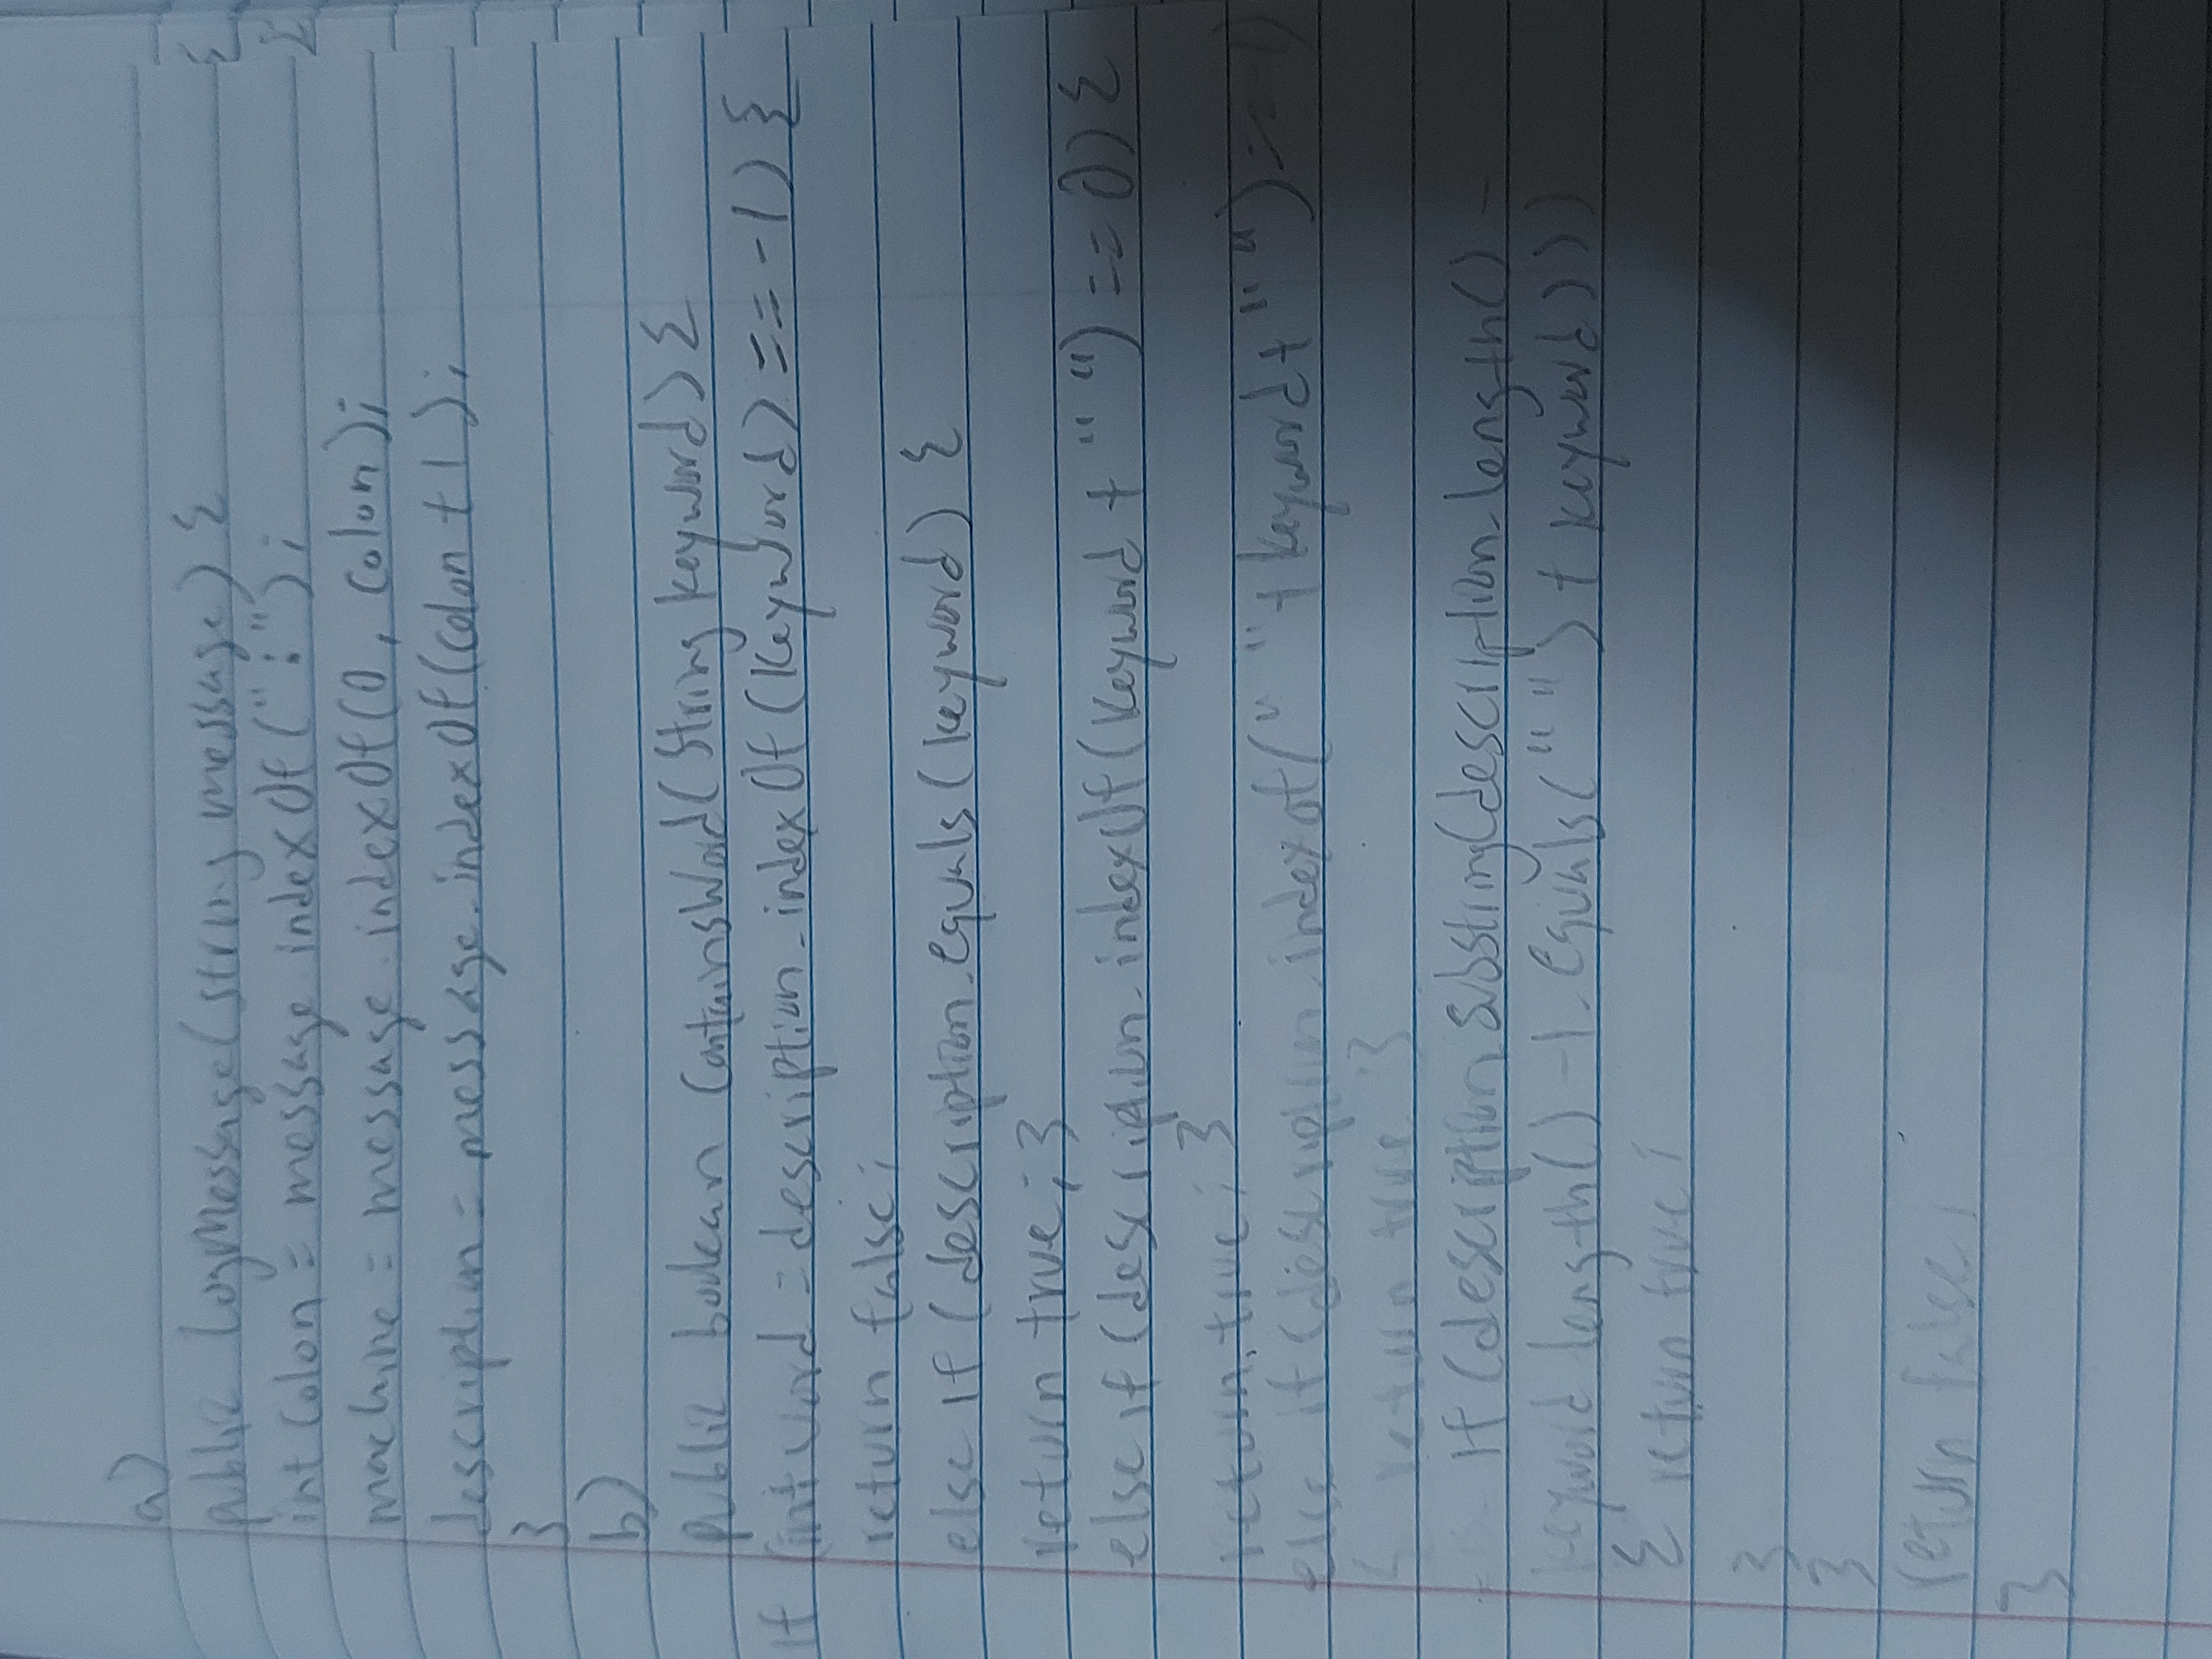 a)
public LogMessage(string message) {
int colon = message indexOf(":");
machine = message.indexOf(0, colon);
description = message.indexOf(colon + 1);
}
b)
public boolean containsWord(String keyword) {
if (int word = description.indexOf(keyword) == -1) {
return false;
else if (description.equals(keyword) {
return true; }
else if (description.indexOf(keyword + " ") == 0) {
return true; }
else if (description.indexof(" " + keyword + " ") ==
{ return true }
if (description.substring(description.length() -
keyword length() -1. equals(" ") + keyword))
{ return true;
}
}
return false;
}